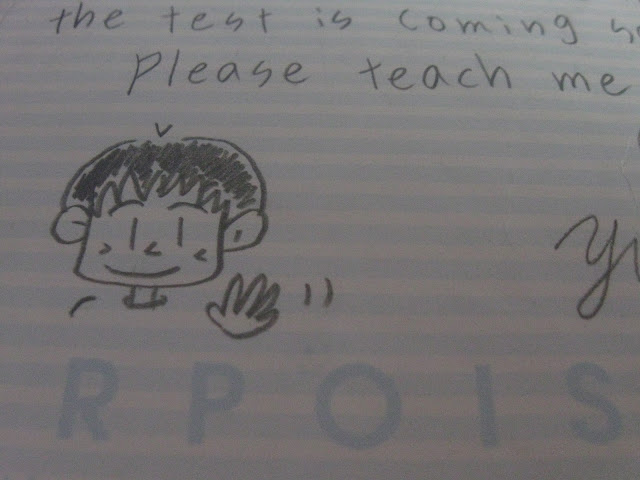 the test is coming
Please teach me
R P O I S